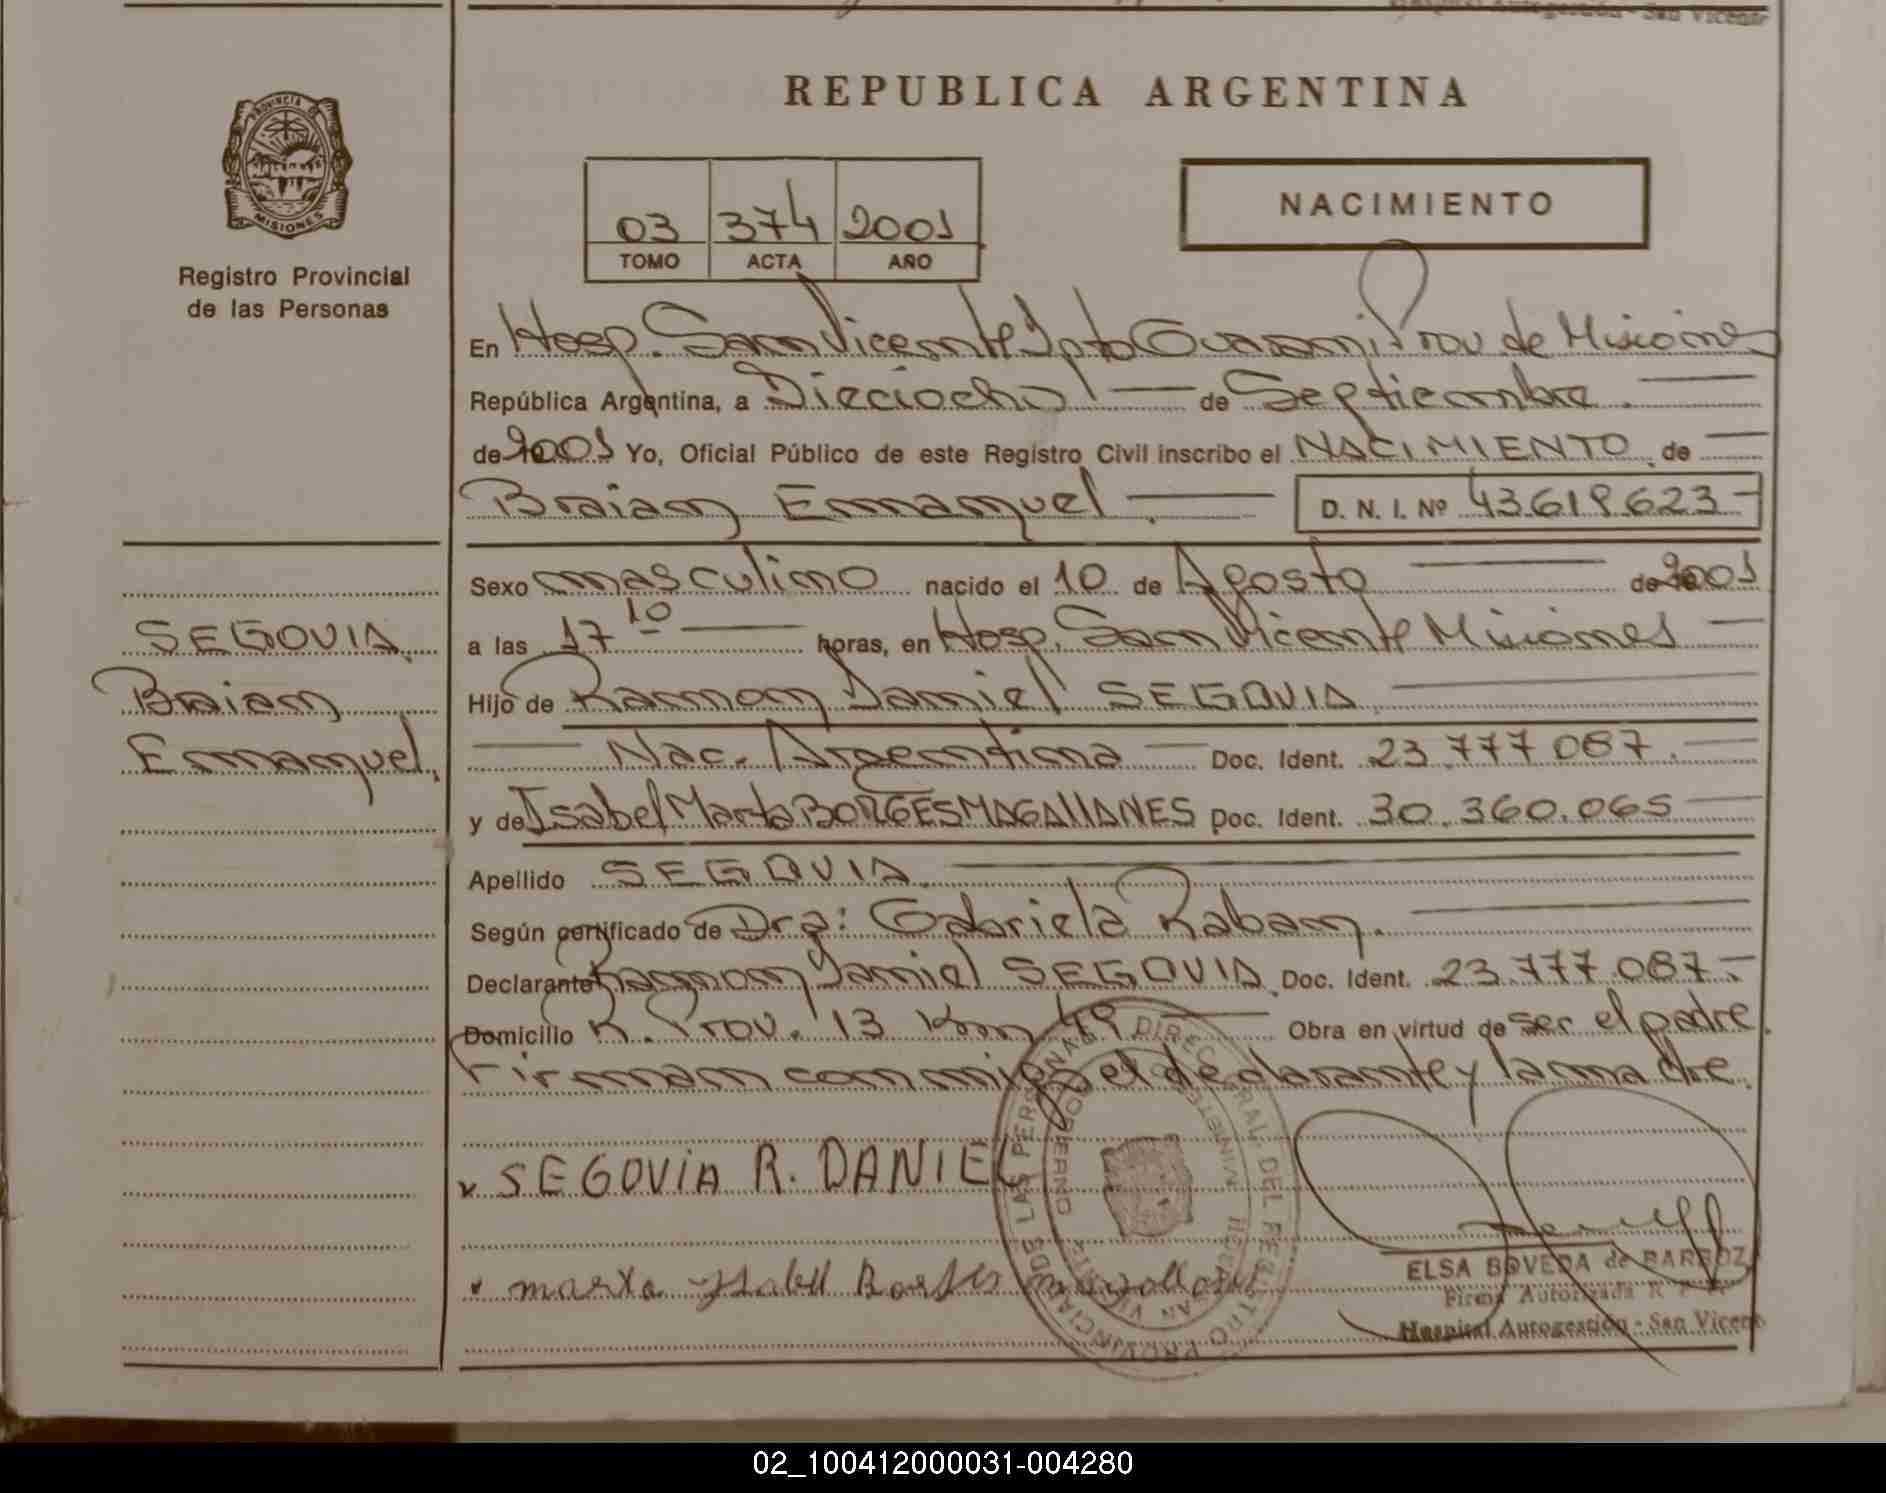 Hospital Autogestión - San Vicente
REPUBLICA ARGENTINA
PROVINCIA DE
MISIONES
Registro Provincial
de las Personas
03 374 2001
TOMO ACTA AÑO
NACIMIENTO
En Hosp. San Vicente Dpto Guarani Prov. de Misiones
República Argentina, a Dieciocho — de Septiembre.
de 2001 Yo, Oficial Público de este Registro Civil inscribo el NACIMIENTO de
Braian Emmanuel. D. N. I. Nº 43.618.623-
Sexo masculino nacido el 10 de Agosto de 2001
SEGOVIA.
Braian
Emmanuel.
a las 17 10 horas, en Hosp. San Vicente Misiones
Hijo de Ramon Daniel SEGOVIA
Nac. Argentina Doc. Ident. 23.777.087.
y de Isabel Marta BORGES MAGALLANES Doc. Ident. 30.360.065
Apellido SEGOVIA.
Según certificado de Dra: Gabriela Raban.
Declarante Ramon Daniel SEGOVIA. Doc. Ident. 23.777.087.-
Domicilio R. Prov. 13 Km 49 Obra en virtud de ser el padre.
Firman conmigo el declarante y la madre.
SEGOVIA R. DANIEL
marta Ysabel
ELSA BOVEDA de BARBOZ
Firma Autorizada R
Hospital Autogestión - San Vicent
02_100412000031-004280